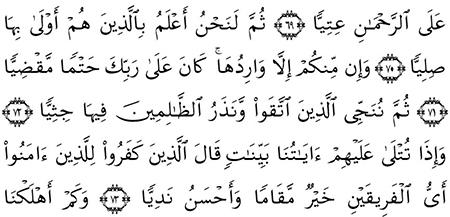 عَلَى ٱلرَّحْمَـٰنِ عِتِيًّا ٦٩ ثُمَّ لَنَحْنُ أَعْلَمُ بِٱلَّذِينَ هُمْ أَوْلَىٰ بِهَا
صِلِيًّا ٧٠ وَإِن مِّنكُمْ إِلَّا وَارِدُهَا ۚ كَانَ عَلَىٰ رَبِّكَ حَتْمًا مَّقْضِيًّا
٧١ ثُمَّ نُنَجِّى ٱلَّذِينَ ٱتَّقَوا۟ وَّنَذَرُ ٱلظَّـٰلِمِينَ فِيهَا جِثِيًّا ٧٢
وَإِذَا تُتْلَىٰ عَلَيْهِمْ ءَايَـٰتُنَا بَيِّنَـٰتٍ قَالَ ٱلَّذِينَ كَفَرُوا۟ لِلَّذِينَ ءَامَنُوٓا۟
أَىُّ ٱلْفَرِيقَيْنِ خَيْرٌ مَّقَامًا وَأَحْسَنُ نَدِيًّا ٧٣ وَكَمْ أَهْلَكْنَا